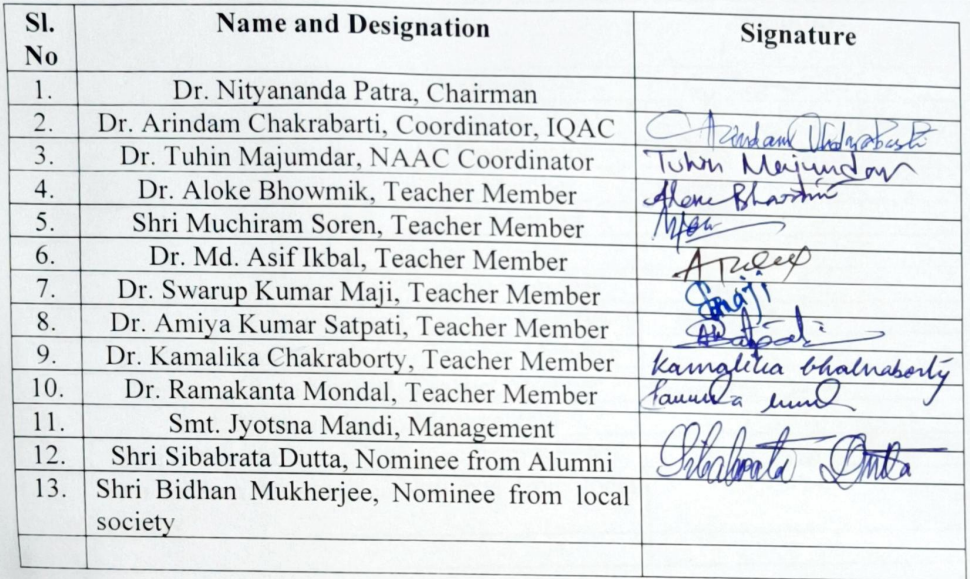 Sl. No Name and Designation Signature
1. Dr. Nityananda Patra, Chairman
2. Dr. Arindam Chakrabarti, Coordinator, IQAC Arindam Chakrabarti
3. Dr. Tuhin Majumdar, NAAC Coordinator Tuhin Majumdar
4. Dr. Aloke Bhowmik, Teacher Member Aloke Bhowmik
5. Shri Muchiram Soren, Teacher Member
6. Dr. Md. Asif Ikbal, Teacher Member
7. Dr. Swarup Kumar Maji, Teacher Member Smaji
8. Dr. Amiya Kumar Satpati, Teacher Member
9. Dr. Kamalika Chakraborty, Teacher Member Kamalika Chakraborty
10. Dr. Ramakanta Mondal, Teacher Member
11. Smt. Jyotsna Mandi, Management
12. Shri Sibabrata Dutta, Nominee from Alumni Sibabrata Dutta
13. Shri Bidhan Mukherjee, Nominee from local
society